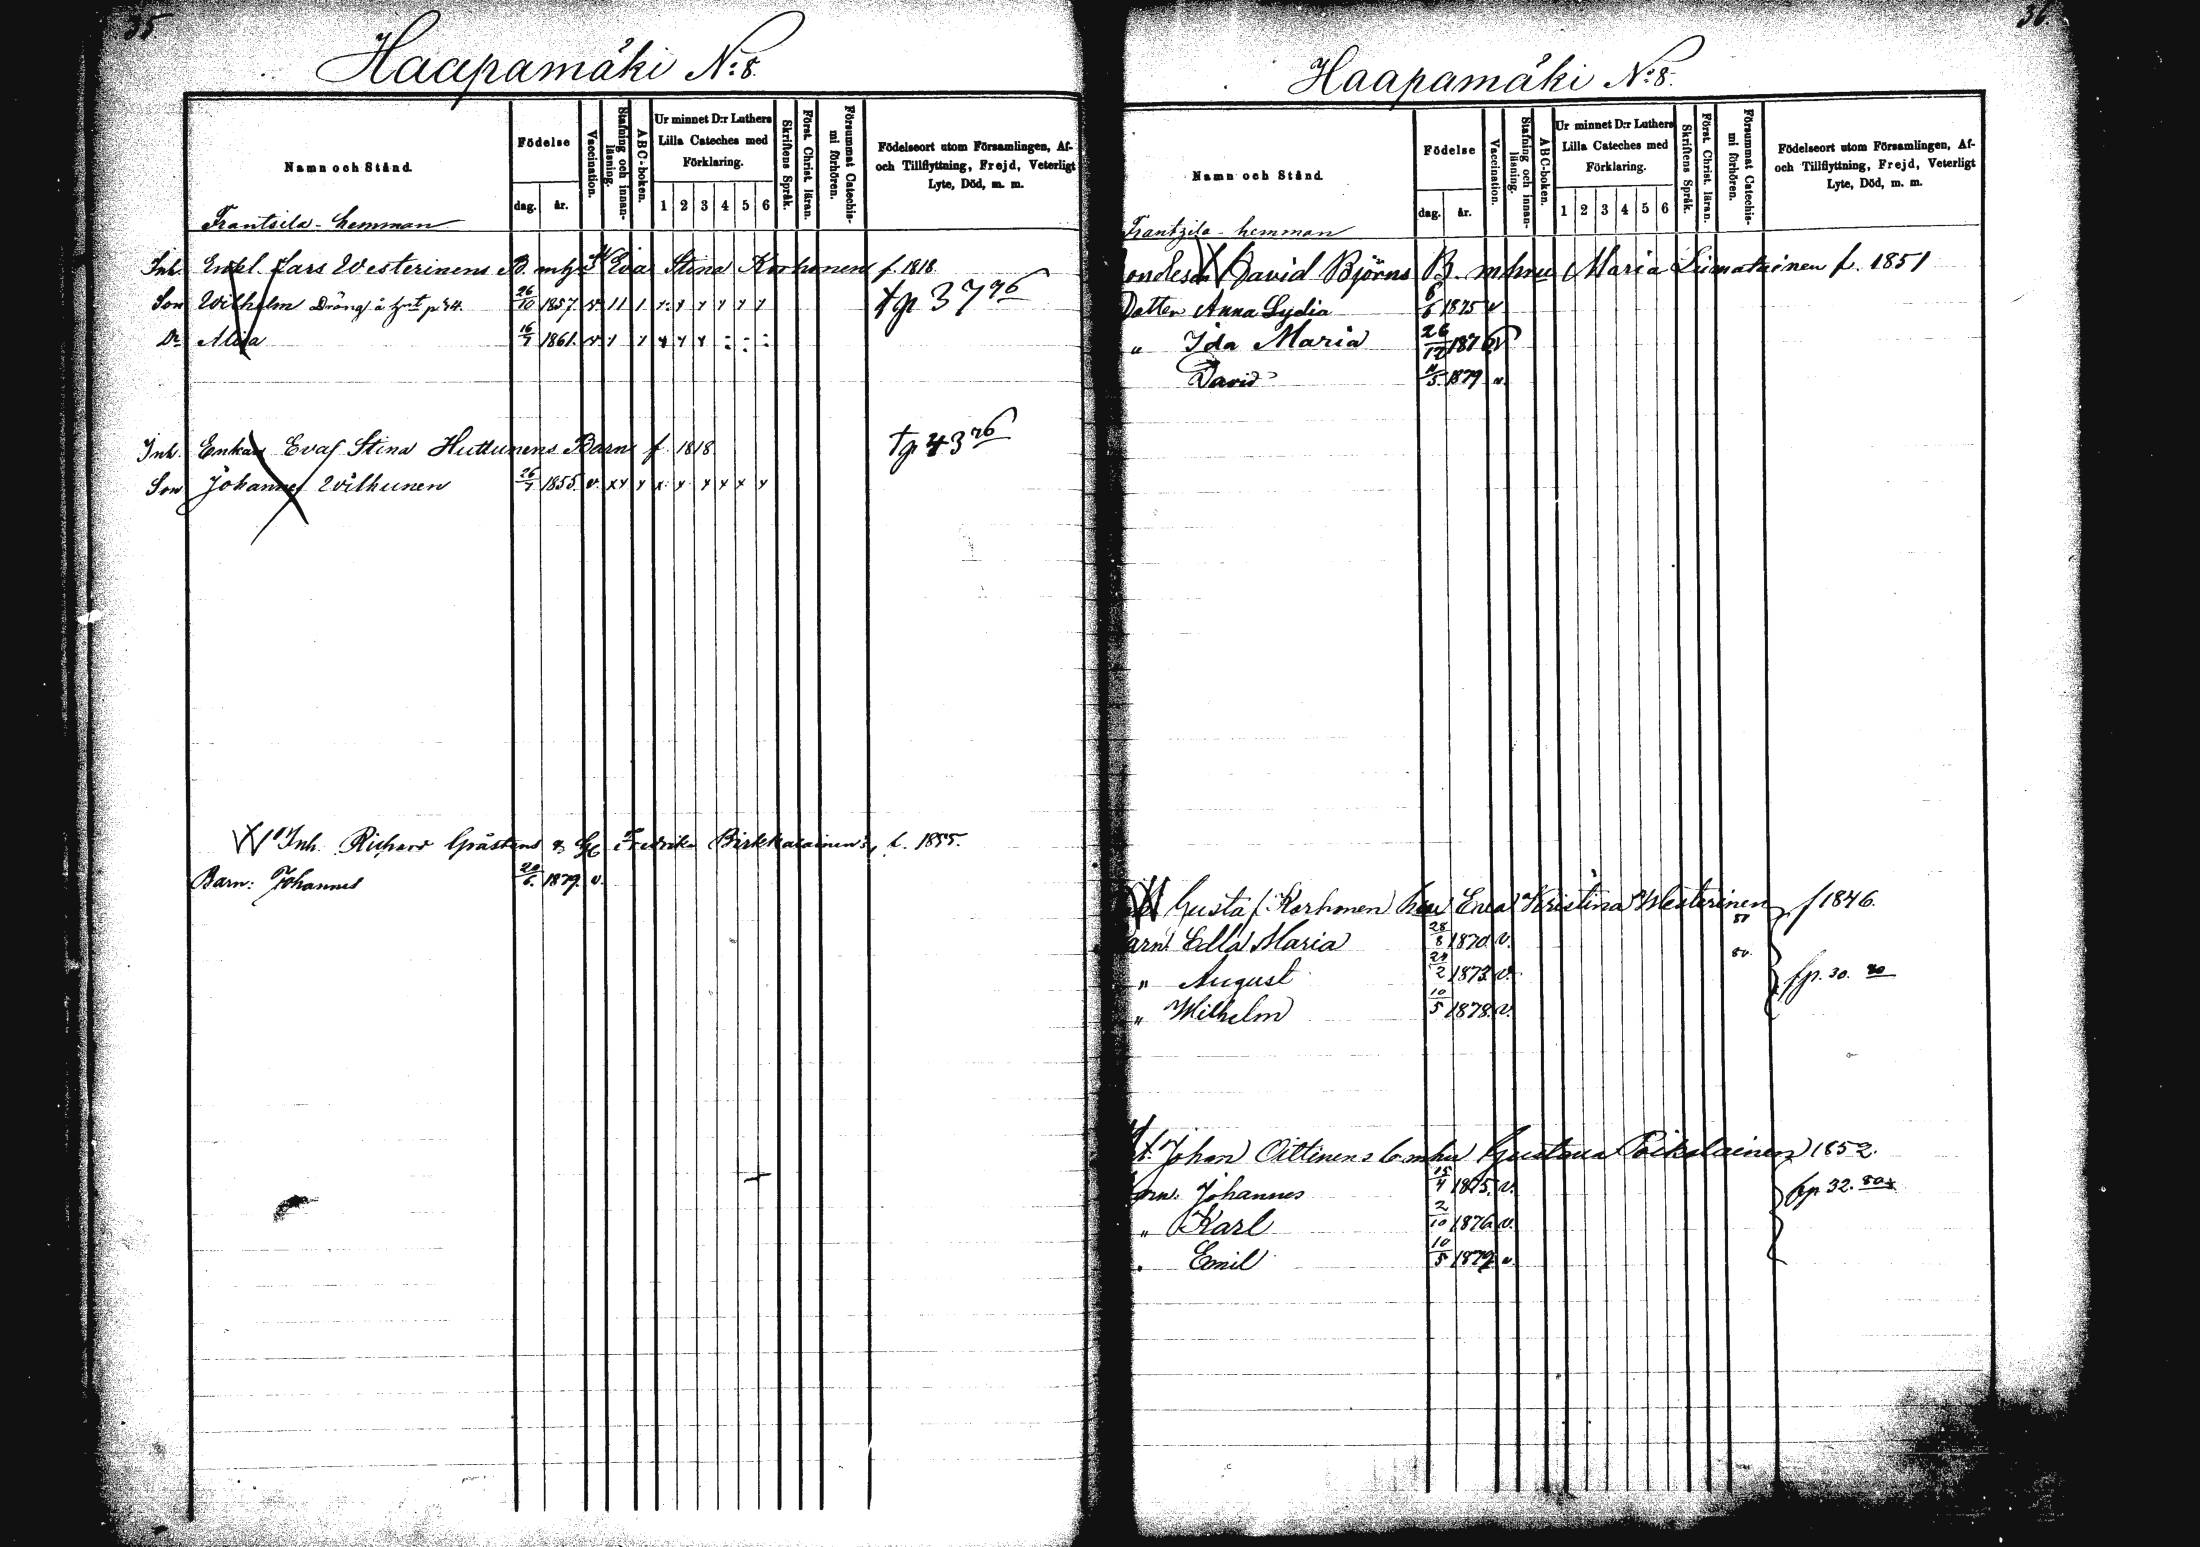 35.
Haapamäki N:8.
Namn och Stånd.
Födelse
dag. år.
Vaccination.
Stafning och innan-läsning.
ABC-boken.
Ur minnet D:r Luthers
Lilla Cateches med
Förklaring.
1 2 3 4 5 6
Skriftens Språk.
Först. Christ. läran.
Försummat Catechis-mi förhören.
Födelseort utom Församlingen, Af-
och Tillflyttning, Frejd, Veterligt
Lyte, Död, m. m.
Frantsila - hemman
Inh. Lars Westerinens B. Eva Stina Korhonen f. 1818
Son Wilhelm Dräng å p 34. 26/10 1857. v.
tp 37 76
Dr 16/7 1861. v
Inh. Enkan Eva Stina Huttunens Barn f. 1818
tp 43 76
Son Johannes Wilhunen 26/7 1855. v.
Inh. Gråstens Fredrika Birkkalainen's, f. 1855.
Barn: Johannes 20/6. 1879. v.
36.
Haapamäki N:8.
Namn och Stånd.
Födelse
dag. år.
Vaccination.
Stafning och innan-läsning.
ABC-boken.
Ur minnet D:r Luthers
Lilla Cateches med
Förklaring.
1 2 3 4 5 6
Skriftens Språk.
Först. Christ. läran.
Försummat Catechis-mi förhören.
Födelseort utom Församlingen, Af-
och Tillflyttning, Frejd, Veterligt
Lyte, Död, m. m.
Frantzila - hemman
David Björns B. mhnu Maria Liimatainen f. 1851
Dotter Anna Lydia 6/6 1875 v
" Ida Maria 26/12 1876 v
David 11/5 1879 v.
Gustaf Korhonen hu Eva Kristina Westerinen f 1846.
arn Edla Maria 28/8 1870 v.
" August 24/2 1873 v.
fp. 30. 80
" Wilhelm 10/5 1878. v.
Johan Oittinens b mhu Gustava Poikolainen 1852.
arn. Johannes 15/4 1875. v.
fp 32. 80
" Karl 2/10 1876 v.
" Emil 10/5 1879 v.